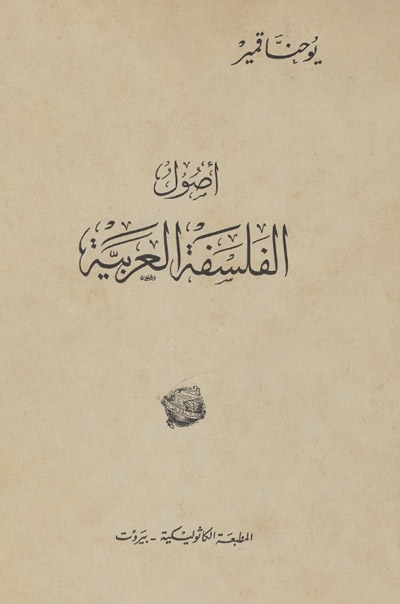 يوحنا قمير
أصول
الفلسفة العربية
المطبعة الكاثوليكية - بيروت